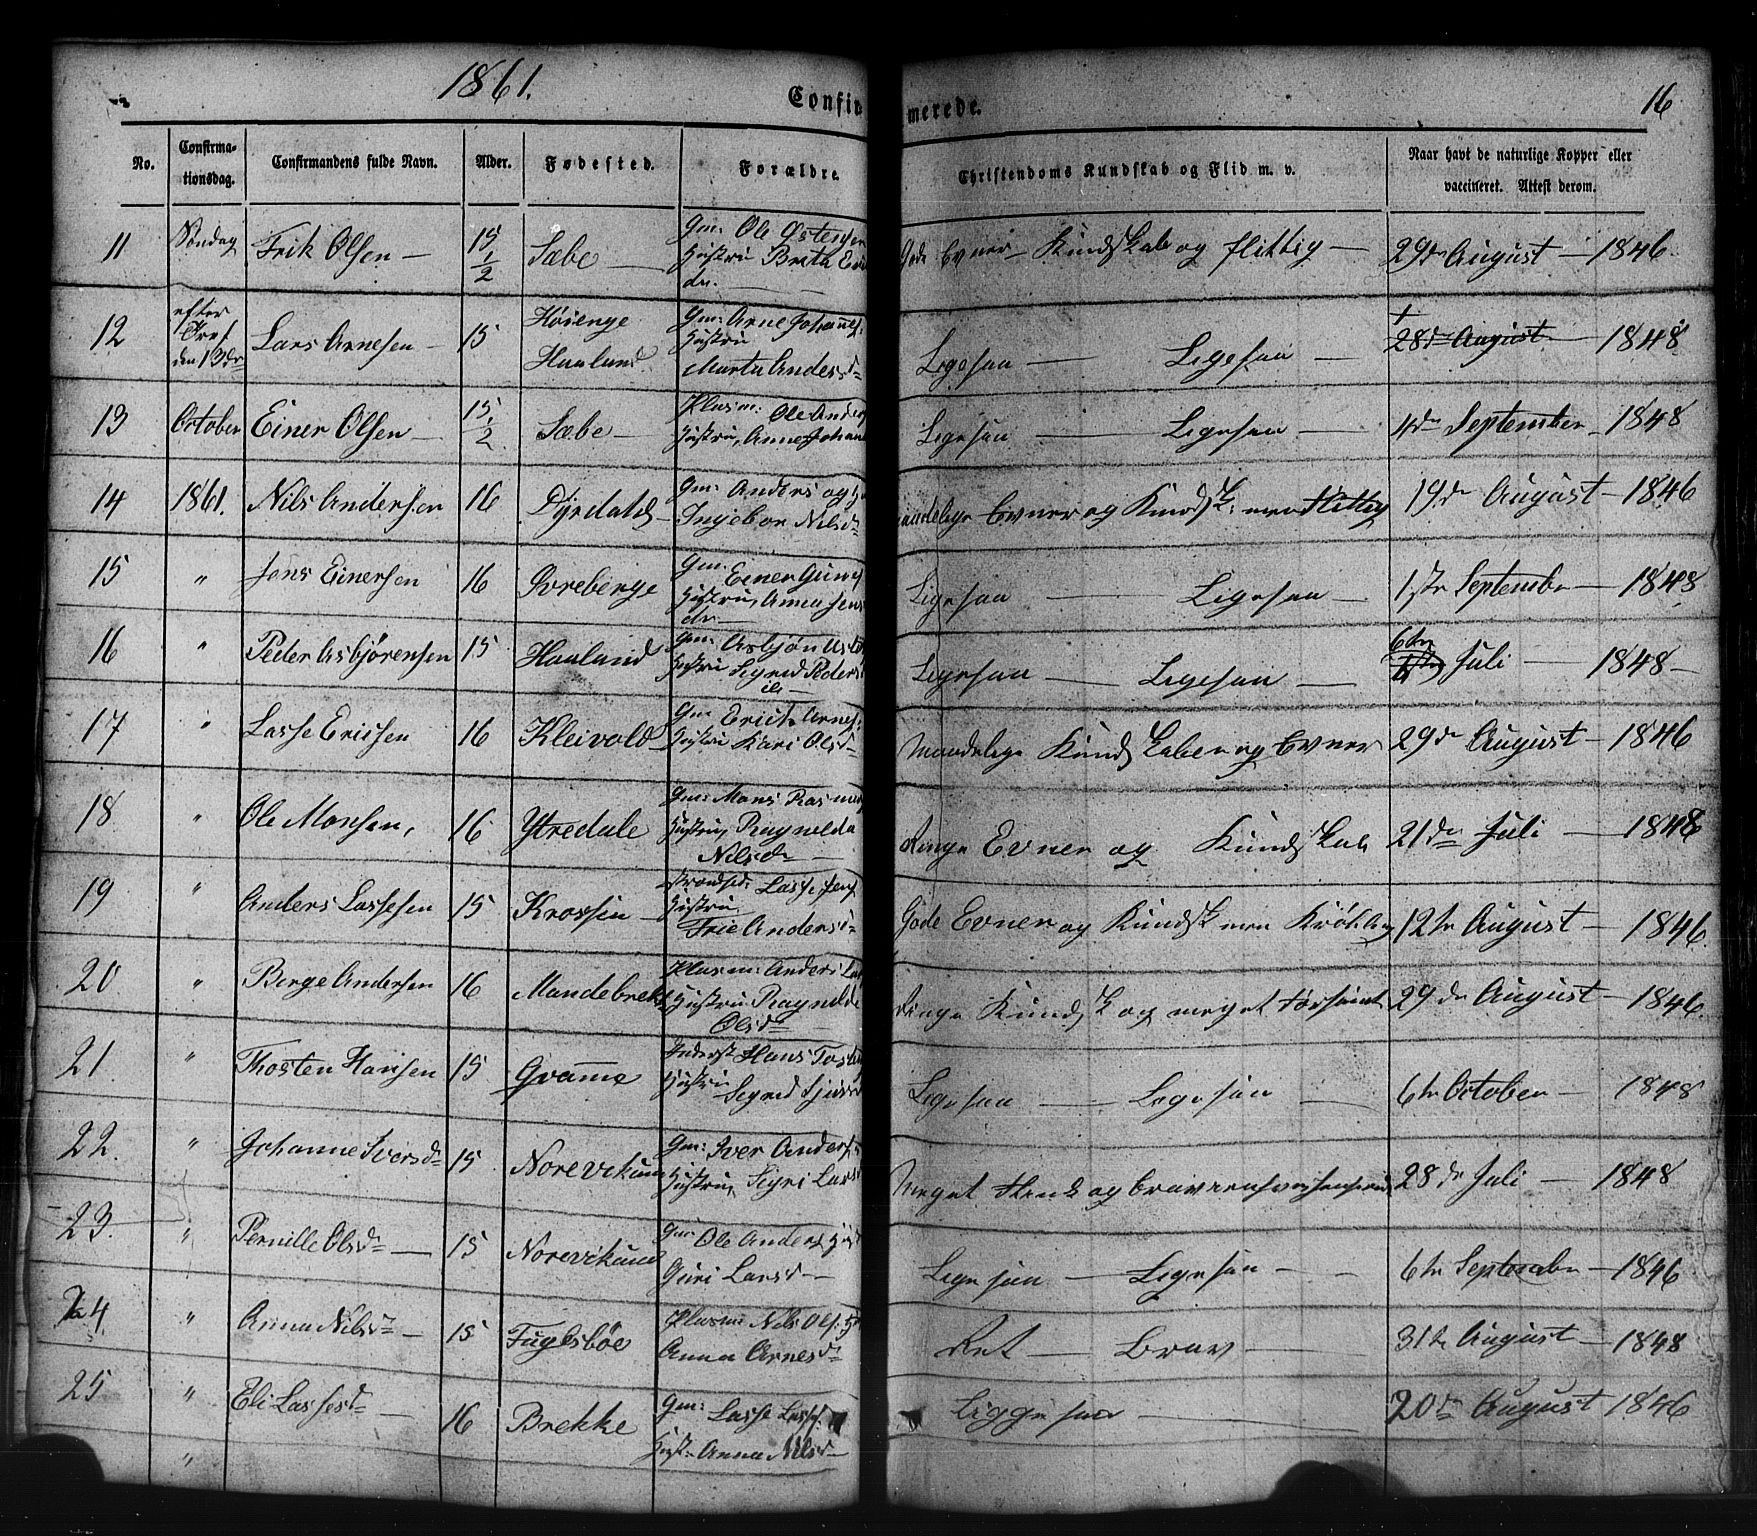 1861.
Confirmerede.
16
No.
Confirmationsdag.
Confirmandens fulde Navn.
Alder.
Fødested.
Forældre.
Christendoms Kundskab og Flid m. v.
Naar havt de naturlige Kopper eller vaccineret. Attest derom.
11 Søndag Erik Olsen — 15 1/2 Sæbe — Gm: Ole Østensen
Hustru Brita
dr.
Gode Evner Kundskab og flittig — 29de August — 1846
12 efter Tref den 13de Lars Arnesen — 15 Høienge Haaland Gm: Arne Johannes
Hustru
Marta Andersd
Ligesaa — Ligesaa — 28de August 1848
13 October Einer Olsen — 15 1/2 Sæbe — Plasm: Ole Anders
Hustru Anne Johan
Ligesaa — Ligesaa — 4de September — 1848
14 1861. Nils Andersen 16 Dyrdald — Gm: Anders og
Ingebor Nilsd
maadelige Evner og Kundsk: men flittig 19de August — 1846
15 " Jens Einersen 16 Øvreberge Gm: Einer
Hustru, Anna Jens
dr —
Ligesaa — Ligesaa — 1ste September — 1848
16 " Peder Asbjørensen 15 Haaland Gm: Asbjøn
Hustru Sigrid Peders
Ligesaa — Ligesaa — 6te Juli — 1848 —
17 " Lasse Ericsen 16 Kleivold — Gm Erick Arnes
Hustru Kari Olsd —
Maadelige Kundskaber og Evner 29de August — 1846
18 " Ole Monsen, 16 Ytredale Gm: Mons Rasmus
Hustru, Ragnilda
Nilsd —
Ringe Evner og Kundskab 21de Juli — 1848
19 " Anders Lassesen 15 Krossen — Lasse Jens
Hustru
Anders
Gode Evner og Kundsk men 12te August — 1846
20 " Berge Andersen 16 Mandebrekk Plasm: Anders
Hustru Ragnilde
Olsd
Ringe Kundsk og meget forsømt 29de August — 1846
21 " Thosten Hansen 15 Gvamme Inderst Hans
Hustru
Sigrid
Ligesaa — Ligesaa — 6te October — 1848
22 " Johanne Iversd 15 Norevikum Gm: Iver Anders
Hustru, Sigri Lars
Meget flink og 28de Juli — 1848
23 " Pernille Olsd — 15 Norevikum Gm Ole Anders
Guri Larsd —
Ligesaa — Ligesaa — 6te September — 1846
24 " Anna Nilsd — 15 Fuglsbøe Plasm Nils Ols
Anna Arnesd
Ret — Brav — 31te August — 1848
25 " Eli Lassesd — 16 Brekke Gm: Lasse Lass
Hust: Anna Nilsd —
Liggesaa — 20de August 1846
"